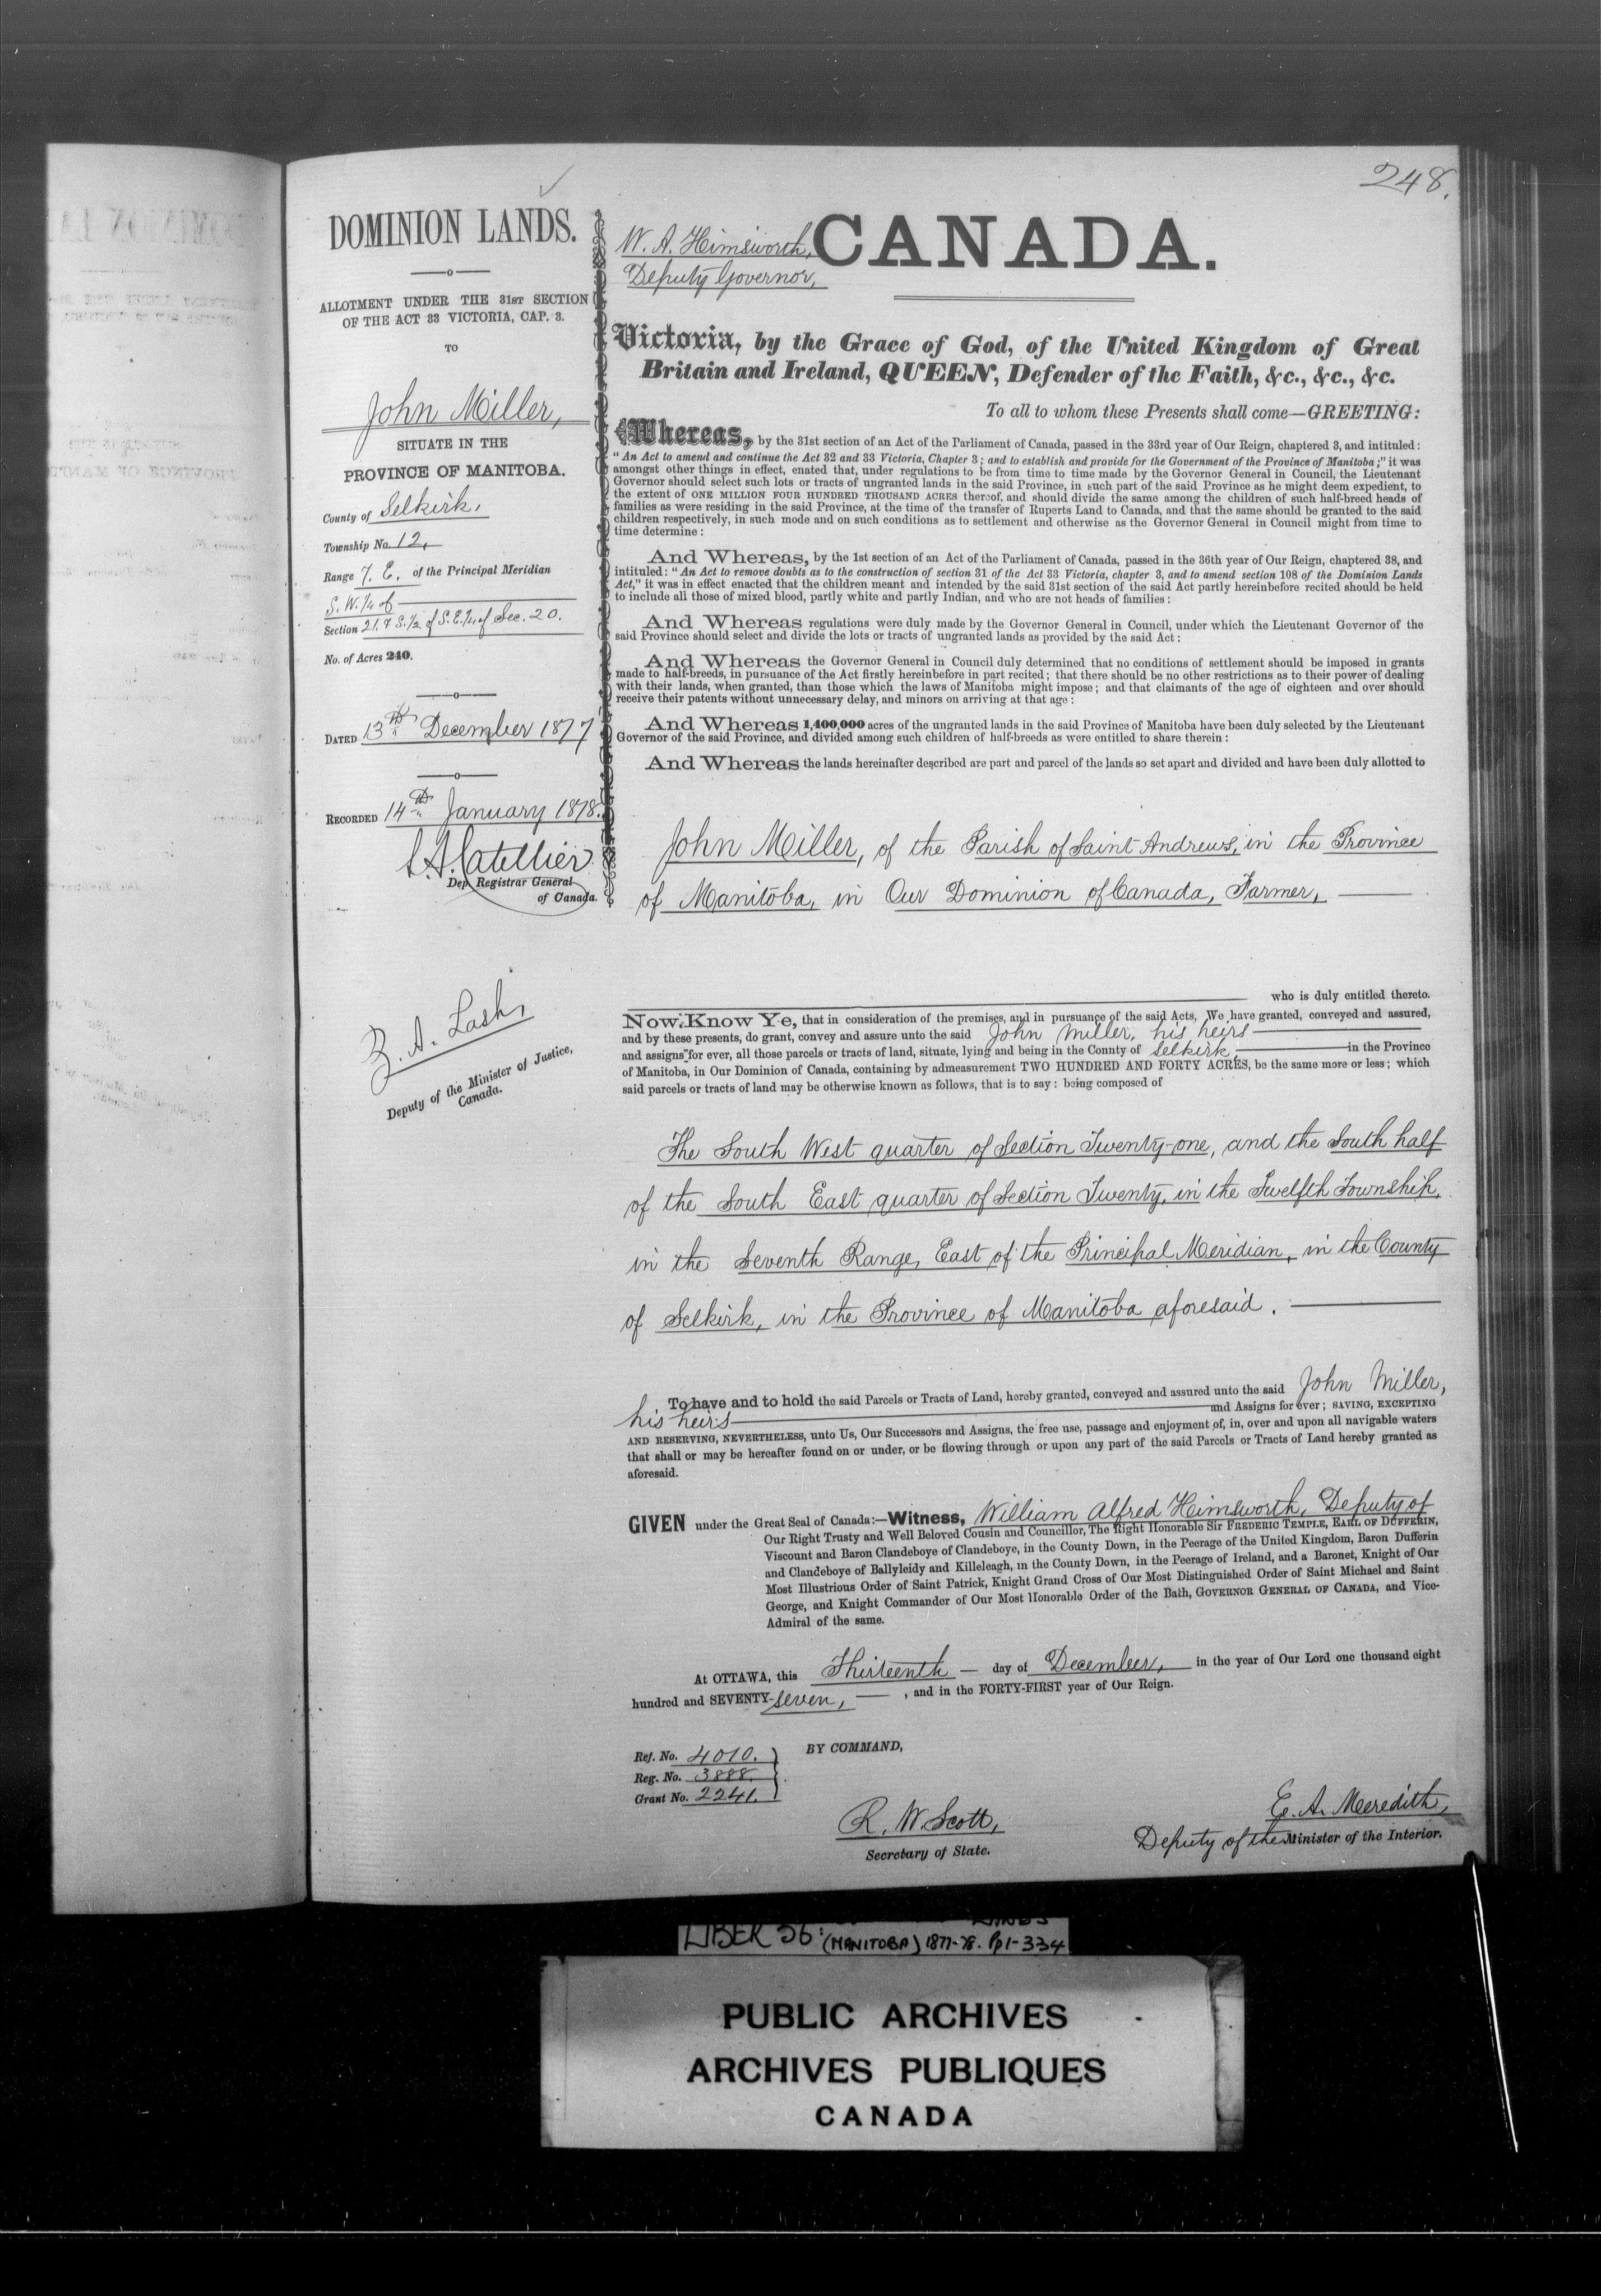 248.
DOMINION LANDS.
ALLOTMENT UNDER THE 31ST SECTION
OF THE ACT 33 VICTORIA, CAP. 3.
TO
John Miller,
SITUATE IN THE
PROVINCE OF MANITOBA.
County of Selkirk,
Township No. 12,
Range 7. E. of the Principal Meridian
S. W. 1/4 of
Section 21. & S. 1/2 of S. E. 1/4 of Sec. 20.
No. of Acres 240.
DATED 13th December 1877
RECORDED 14th January 1878.
L. A. Catellier
Dep. Registrar General
of Canada.
Z. A. Lash,
Deputy of the Minister of Justice,
Canada.
W. A. Himsworth,
Deputy Governor,
CANADA.
Victoria, by the Grace of God, of the United Kingdom of Great
Britain and Ireland, QUEEN, Defender of the Faith, &c., &c., &c.
To all to whom these Presents shall come—GREETING:
Whereas, by the 31st section of an Act of the Parliament of Canada, passed in the 33rd year of Our Reign, chaptered 3, and intituled:
"An Act to amend and continue the Act 32 and 33 Victoria, Chapter 3; and to establish and provide for the Government of the Province of Manitoba;" it was
amongst other things in effect, enated that, under regulations to be from time to time made by the Governor General in Council, the Lieutenant
Governor should select such lots or tracts of ungranted lands in the said Province, in such part of the said Province as he might deem expedient, to
the extent of ONE MILLION FOUR HUNDRED THOUSAND ACRES thereof, and should divide the same among the children of such half-breed heads of
families as were residing in the said Province, at the time of the transfer of Ruperts Land to Canada, and that the same should be granted to the said
children respectively, in such mode and on such conditions as to settlement and otherwise as the Governor General in Council might from time to
time determine:
And Whereas, by the 1st section of an Act of the Parliament of Canada, passed in the 36th year of Our Reign, chaptered 38, and
intituled: "An Act to remove doubts as to the construction of section 31 of the Act 33 Victoria, chapter 3, and to amend section 108 of the Dominion Lands
Act," it was in effect enacted that the children meant and intended by the said 31st section of the said Act partly hereinbefore recited should be held
to include all those of mixed blood, partly white and partly Indian, and who are not heads of families:
And Whereas regulations were duly made by the Governor General in Council, under which the Lieutenant Governor of the
said Province should select and divide the lots or tracts of ungranted lands as provided by the said Act:
And Whereas the Governor General in Council duly determined that no conditions of settlement should be imposed in grants
made to half-breeds, in pursuance of the Act firstly hereinbefore in part recited; that there should be no other restrictions as to their power of dealing
with their lands, when granted, than those which the laws of Manitoba might impose; and that claimants of the age of eighteen and over should
receive their patents without unnecessary delay, and minors on arriving at that age:
And Whereas 1,400,000 acres of the ungranted lands in the said Province of Manitoba have been duly selected by the Lieutenant
Governor of the said Province, and divided among such children of half-breeds as were entitled to share therein:
And Whereas the lands hereinafter described are part and parcel of the lands so set apart and divided and have been duly allotted to
John Miller, of the Parish of Saint Andrews, in the Province
of Manitoba, in Our Dominion of Canada, Farmer,
who is duly entitled thereto.
Now Know Ye, that in consideration of the premises, and in pursuance of the said Acts, We have granted, conveyed and assured,
and by these presents, do grant, convey and assure unto the said John Miller, his heirs
and assigns for ever, all those parcels or tracts of land, situate, lying and being in the County of Selkirk, in the Province
of Manitoba, in Our Dominion of Canada, containing by admeasurement TWO HUNDRED AND FORTY ACRES, be the same more or less; which
said parcels or tracts of land may be otherwise known as follows, that is to say: being composed of
The South West quarter of Section Twenty-one, and the South half
of the South East quarter of Section Twenty, in the Twelfth Township,
in the Seventh Range, East of the Principal Meridian, in the County
of Selkirk, in the Province of Manitoba aforesaid.
To have and to hold the said Parcels or Tracts of Land, hereby granted, conveyed and assured unto the said John Miller,
his heirs and Assigns for ever; SAVING, EXCEPTING
AND RESERVING, NEVERTHELESS, unto Us, Our Successors and Assigns, the free use, passage and enjoyment of, in, over and upon all navigable waters
that shall or may be hereafter found on or under, or be flowing through or upon any part of the said Parcels or Tracts of Land hereby granted as
aforesaid.
GIVEN under the Great Seal of Canada:—Witness, William Alfred Himsworth, Deputy of
Our Right Trusty and Well Beloved Cousin and Councillor, The Right Honorable Sir FREDERIC TEMPLE, EARL OF DUFFERIN,
Viscount and Baron Clandeboye of Clandeboye, in the County Down, in the Peerage of the United Kingdom, Baron Dufferin
and Clandeboye of Ballyleidy and Killeleagh, in the County Down, in the Peerage of Ireland, and a Baronet, Knight of Our
Most Illustrious Order of Saint Patrick, Knight Grand Cross of Our Most Distinguished Order of Saint Michael and Saint
George, and Knight Commander of Our Most Honorable Order of the Bath, GOVERNOR GENERAL OF CANADA, and Vice-
Admiral of the same.
At OTTAWA, this Thirteenth day of December, in the year of Our Lord one thousand eight
hundred and SEVENTY-seven, , and in the FORTY-FIRST year of Our Reign.
Ref. No. 4010.
Reg. No. 3888.
Grant No. 2241.
BY COMMAND,
R. W. Scott,
Secretary of State.
E. A. Meredith,
Deputy of the Minister of the Interior.
LANDS
LIBER 56: (MANITOBA) 1877-78. Pp1-334
PUBLIC ARCHIVES
ARCHIVES PUBLIQUES
CANADA